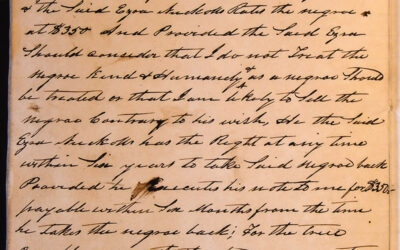 & the Said Ezra Nuckolls Rates the negroe
at $350 And Provided the Said Ezra
Should consider that I do not Treat the
negroe Kind & Humanely as a negroe Should
be treated or that I am likely to Sell the
negroe Contrary to his wish, He the Said
Ezra Nuckolls has the Right at any time
within Six years to take Said Negroe back
Provided he Executes his note to me for $350-
payable within Six Months from the time
he takes the negroe back; For the true